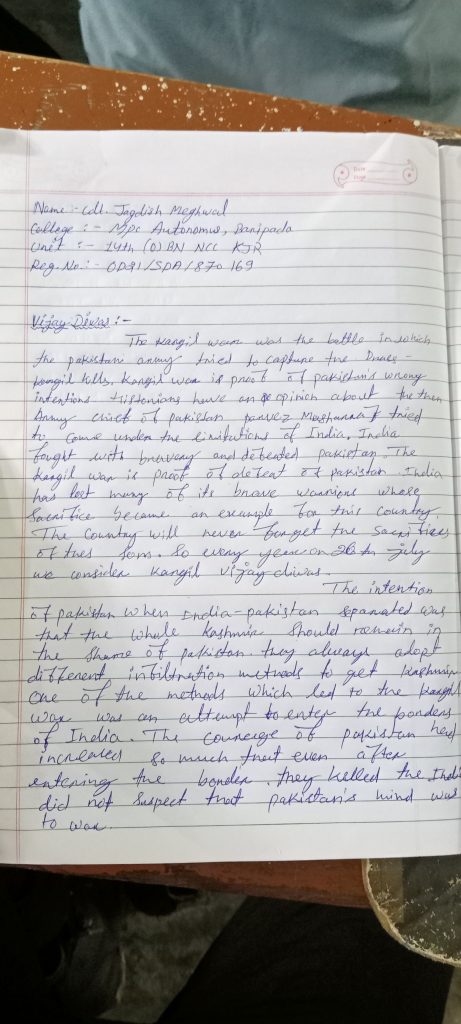 Date
Page
Name:- Cdt. Jagdish Meghwal
College :- MPC Autonomus, Baripada
Unit :- 14th (O) BN NCC KJR
Reg. No. :- OD21/SDA/870169
Vijay Diwas :-
The Kargil warr was the battle in which
the pakistani army tried to capture the Draas-
kargil hills. Kargil war is proof of pakistan's wrong
intentions Historians have an opinion about the then
Army chief of pakistan parvez Musharraf tried
to come under the limitations of India. India
fought with bravery and defeated pakistan. The
Kargil war is proof of defeat of pakistan. India
has lost many of its brave warriors whose
sacrifice became an example for this country.
The country will never forget the sacrifices
of thes sons. So every year on 26 th July
we consider kargil vijay diwas.
The intention
of pakistan when India-pakistan separated was
that the whole Kashmir should remain in
the share of pakistan. they always adopt
different infiltration methods to get kashmir
one of the methods which led to the kargil
war was an attempt to enter the borders
of India. The courage of pakistan had
increased so much that even after
entering the border, they killed the Indi
did not suspect that pakistan's mind was
to war.